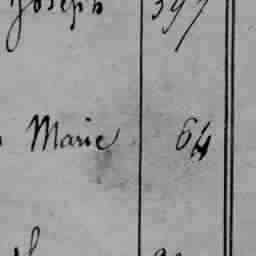 Joseph 397
Marie 64